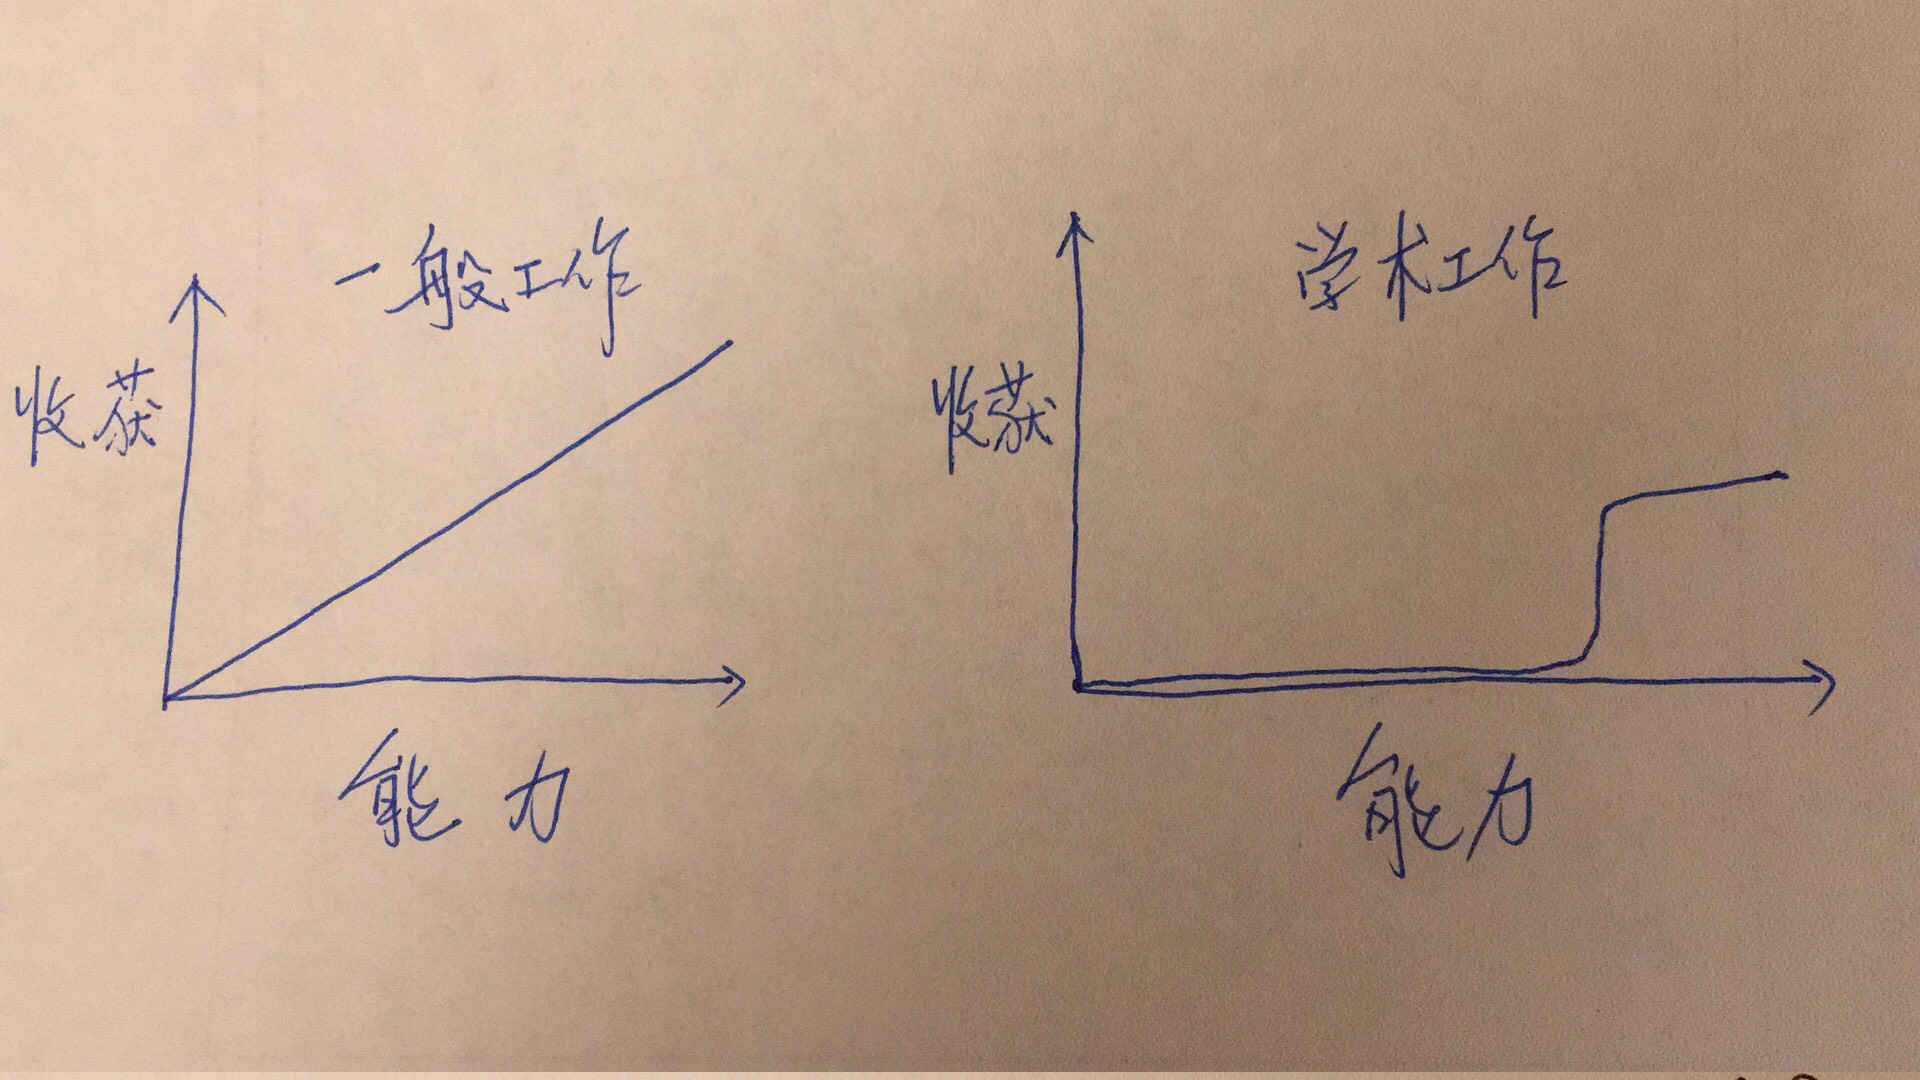 一般工作
收获
能力
学术工作
收获
能力